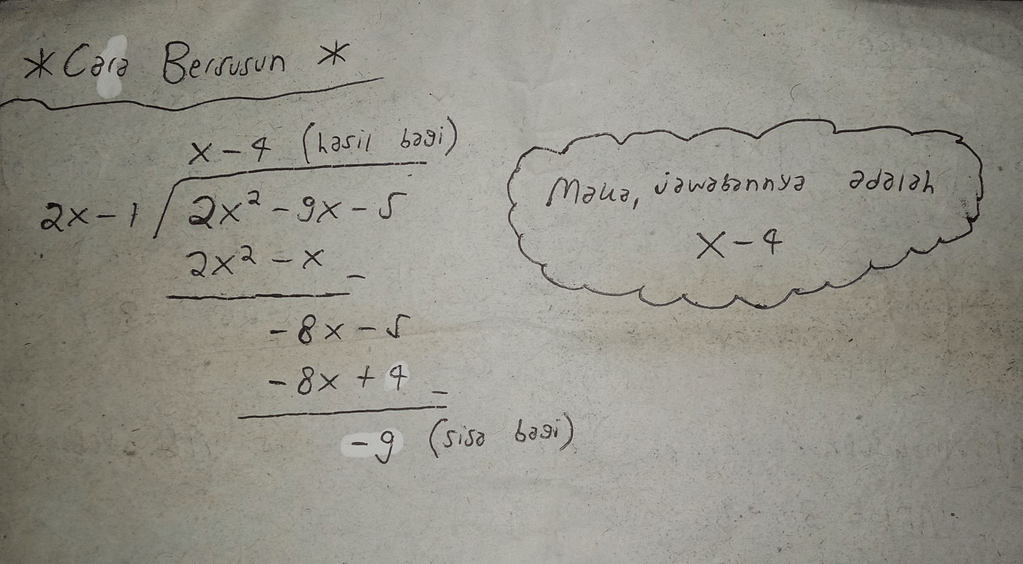 * Cara Bersusun *
x - 4 (hasil bagi)
2x - 1 / 2x² - 9x - 5
2x² - x -
-8x - 5
-8x + 4 -
-9 (sisa bagi)
Maka, jawabannya adalah
x - 4